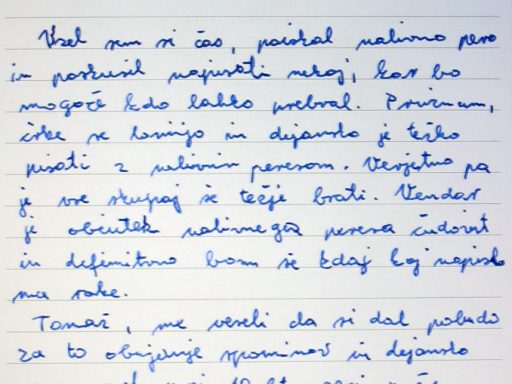 Vzel sem si čas, poiskal nalivno pero
in poskusil napisati nekaj, kar bo
mogoče kdo lahko prebral. Priznam,
črke se lomijo in dejansko je težko
pisati z nalivnim peresom. Verjetno pa
je vse skupaj še težje brati. Vendar
je občutek nalivnega peresa čudovit
in definitivno bom še kdaj kaj napisal
na roke.
Tomaž, me veseli da si dal pobudo
za to obujanje spominov in dejansko